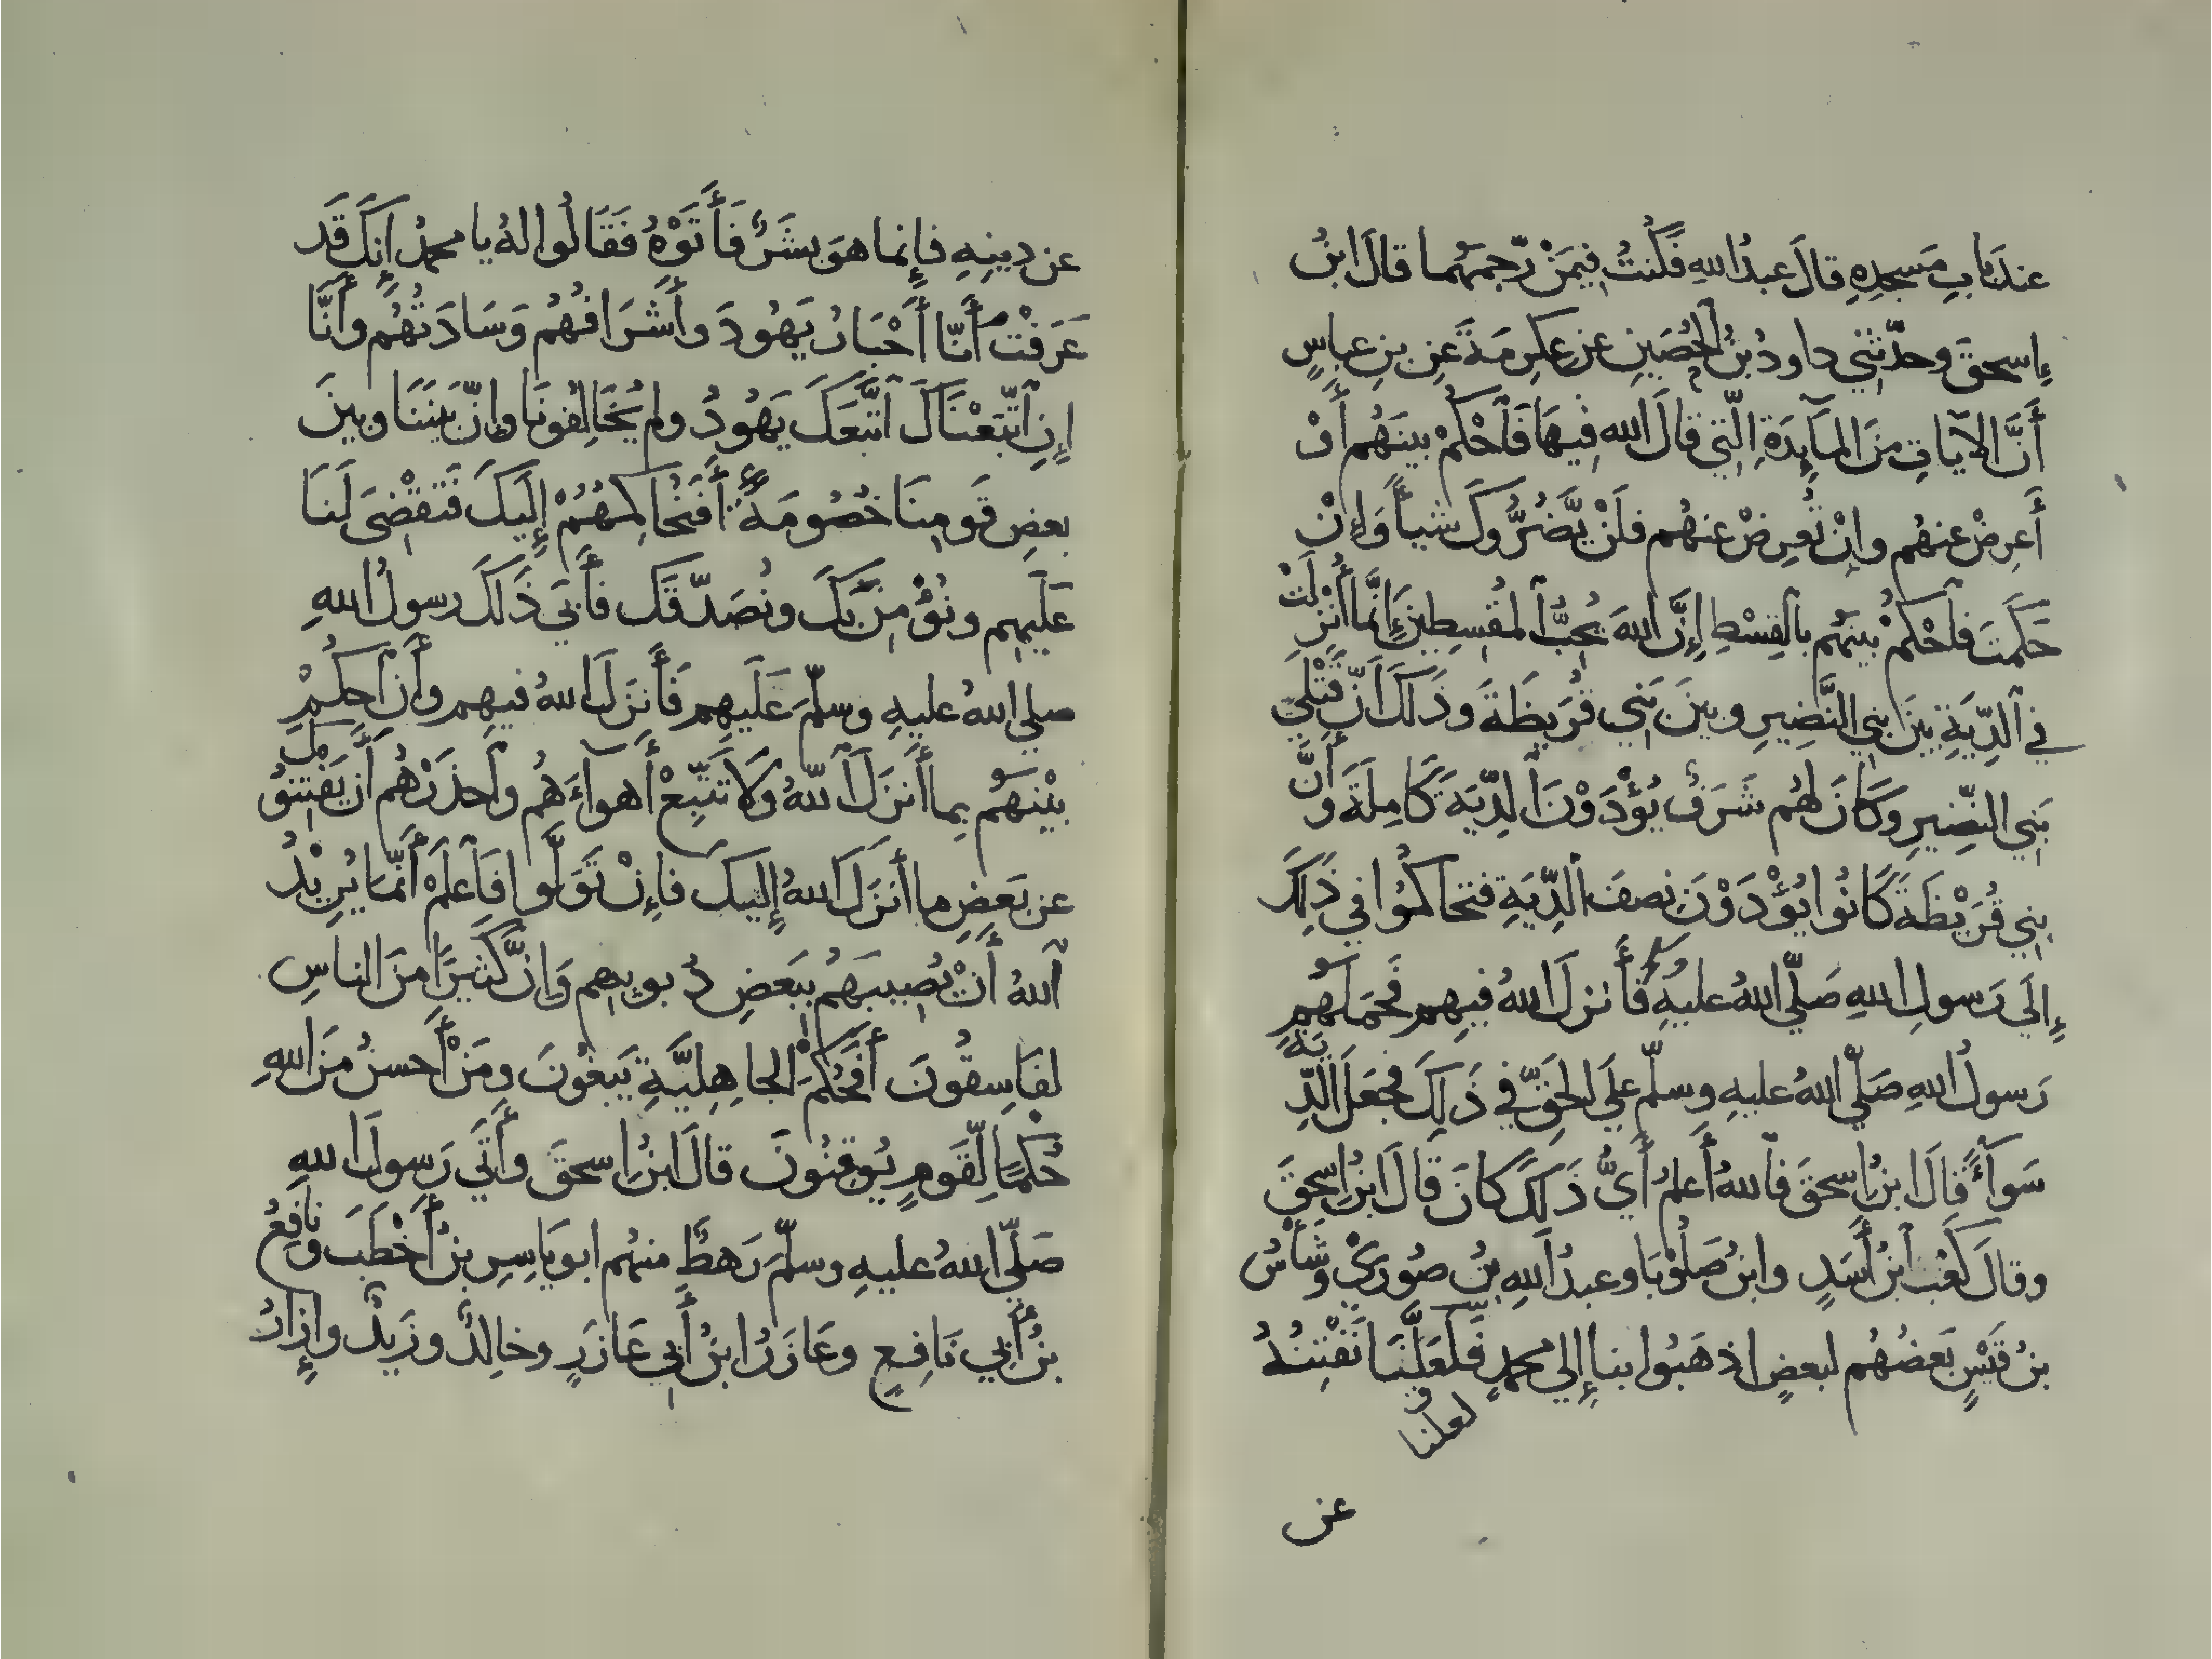 عندَ بابِ مَسجدِهِ قالَ عبدُ اللهِ فَكُنتُ فِيمَنْ رَّجمَهُما قالَ ابنُ
إسحقَ وحدّثَني داودُ بنُ الحُصَينِ عن عِكرِمَةَ عَنِ بنِ عباسٍ
أَنَّ الآيَاتِ مِنَ المَآيِدَةِ الَّتِي قالَ الله فِيهَا فَاَحْكمْ بينَهُم أَوْ
أَعرِضْ عنهُم وإنْ تُعرِضْ عنهُم فلَنْ يَّضُرُّوكَ شيأً وَإِنْ
حَكمتَ فاَحْكمْ بينَهُم بالقِسْطِ إِنَّ اللهَ يُحبُّ المُقسِطِينَ إِنَّما أُنْزِلَتْ
في الدِّيَةِ بينَ بنِي النَّضِيرِ وبينَ بَنِي قُرَيظَةَ وذَلكَ أَنَّ قَتْلَي
بَنِي النضِّيرِ وكَانَ لهُم شَرَفٌ يُؤْدَوْنَ الدِّيَةَ كَامِلَةً وأَنَّ
بنِي قُرَيْظَةَ كَانُوا يُؤْدَوْنَ نصفَ الدِّيَةِ فتحاكمُوا في ذَلِكَ
إِلَي رَسولِ اللهِ صَلّي اللهُ عليهِ وسلم فأَنزلَ اللهُ فيهِم فَحَمَلَهُم
رَسولُ اللهِ صَلّي اللهُ عليهِ وسلّم علَي الحَقِّ في ذَلِكَ فجعَلَ الدِّيَةَ
سَوآءً قالَ ابنُ إسحقَ فاللهُ أَعلمُ أَيُّ ذَلكَ كانَ قالَ ابنُ إسحقَ
وقالَ كَعْبُ ابنُ أَسَدٍ وابنُ صَلُوْبَا وعبدُ اللهِ بنُ صُورَيْ وشَأْسُ
بنُ قَيْسٍ بَعضُهُم لبعضٍ اذهَبُوا بنا إِلي محمدٍ فَلَعَلَّنَا نَفْتِنُهُ
لعلنا
عن
عن دِينِهِ فإِنما هوَ بشَرٌ فَأَتَوْهُ فَقَالُوا لهُ يا محمدُ إِنكَ قَد
عَرَفْتَ أَنّا أَحْبَارُ يَهُودَ وأَشرَافُهُم وَسَادَتُهُم وأَنَّا
إِنِ اتَّبَعْنَاكَ اتَّبَعكَ يَهُودُ ولم يُخَالِفُونَا وإنّ بينَنَا وبينَ
بعضِ قَومِنَا خُصُومَةً أَفَنُحاكِمُهُمْ إِلَيكَ فَتَقْضِيَ لَنا
عَلَيهِم ونُؤْمِنَ بكَ ونُصَدّقَكَ فأَبَي ذَلكَ رسولُ اللهِ
صلي اللهُ عليهِ وسلّمَ عَلَيهِم فَأَنزَلَ اللهُ فيهِم وأَنِ احكُمْ
بيْنَهُم بِما أَنزَلَ اللهُ ولَا تَتَّبِعْ أَهوآءَهُم واحذَرْهُم أَن يَفتِنُوكَ
عن بَعضِ ما أَنزَلَ اللهُ إِليكَ فإِنْ تَوَلَّوا فَاعلَمْ أَنّما يُرِيْدُ
اللهُ أَنْ يُصِيبَهُم ببَعضِ ذُنوبِهِم وَإنَّ كَثيرًا مِنَ الناسِ
لفَاسِقُونَ أَفَحُكمَ الجاهِلِيَّةِ يَبغُونَ ومَنْ أَحسنُ مِنَ اللهِ
حُكْمًا لِّقَومٍ يُوقِنُونَ قالَ ابنُ إسحقَ وأَتَي رَسولَ اللهِ
صَلّي اللهُ عليهِ وسلّمَ رَهطٌ منهُم ابو يَاسِرِ بنُ أَخْطَبَ ونَافِعُ
بنُ أَبِي نَافِعٍ وعَازَرُ ابنُ أَبي عَازَرٍ وخالِدٌ وزَيدٌ وإِزَارُ